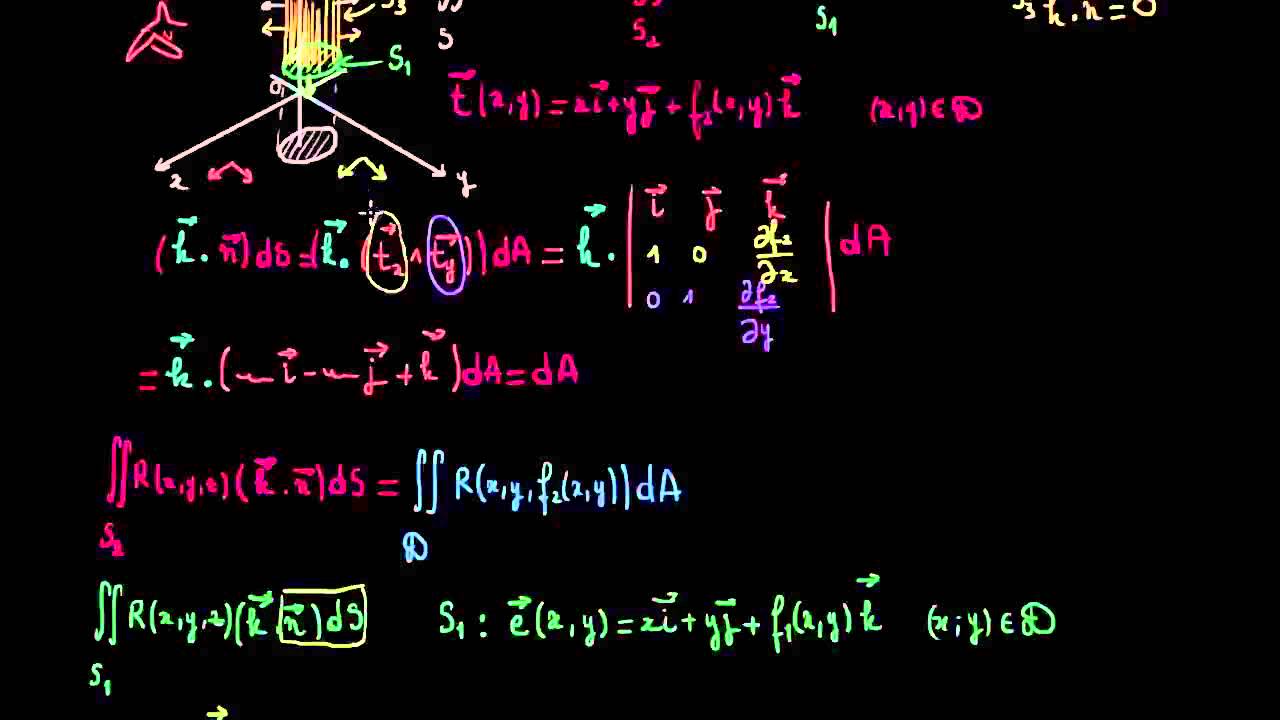 S₃
S S₂ S₁ S₃ k⃗ . n⃗ = 0
S₁
t⃗(x,y) = xi⃗ + yj⃗ + f₂(x,y)k⃗ (x,y) ∈ D
x y
(k⃗ . n⃗)dS = (k⃗ . (t⃗x ∧ t⃗y))dA = k⃗ . | i⃗ j⃗ k⃗ | dA
1 0 ∂f₂/∂x
0 1 ∂f₂/∂y
= k⃗ . (~i⃗ - ~j⃗ + k⃗)dA = dA
∬ R(x,y,z)(k⃗ . n⃗)dS = ∬ R(x,y,f₂(x,y))dA
S₂ D
∬ R(x,y,z)(k⃗ . n⃗)dS S₁ : e⃗(x,y) = xi⃗ + yj⃗ + f₁(x,y)k⃗ (x;y) ∈ D
S₁